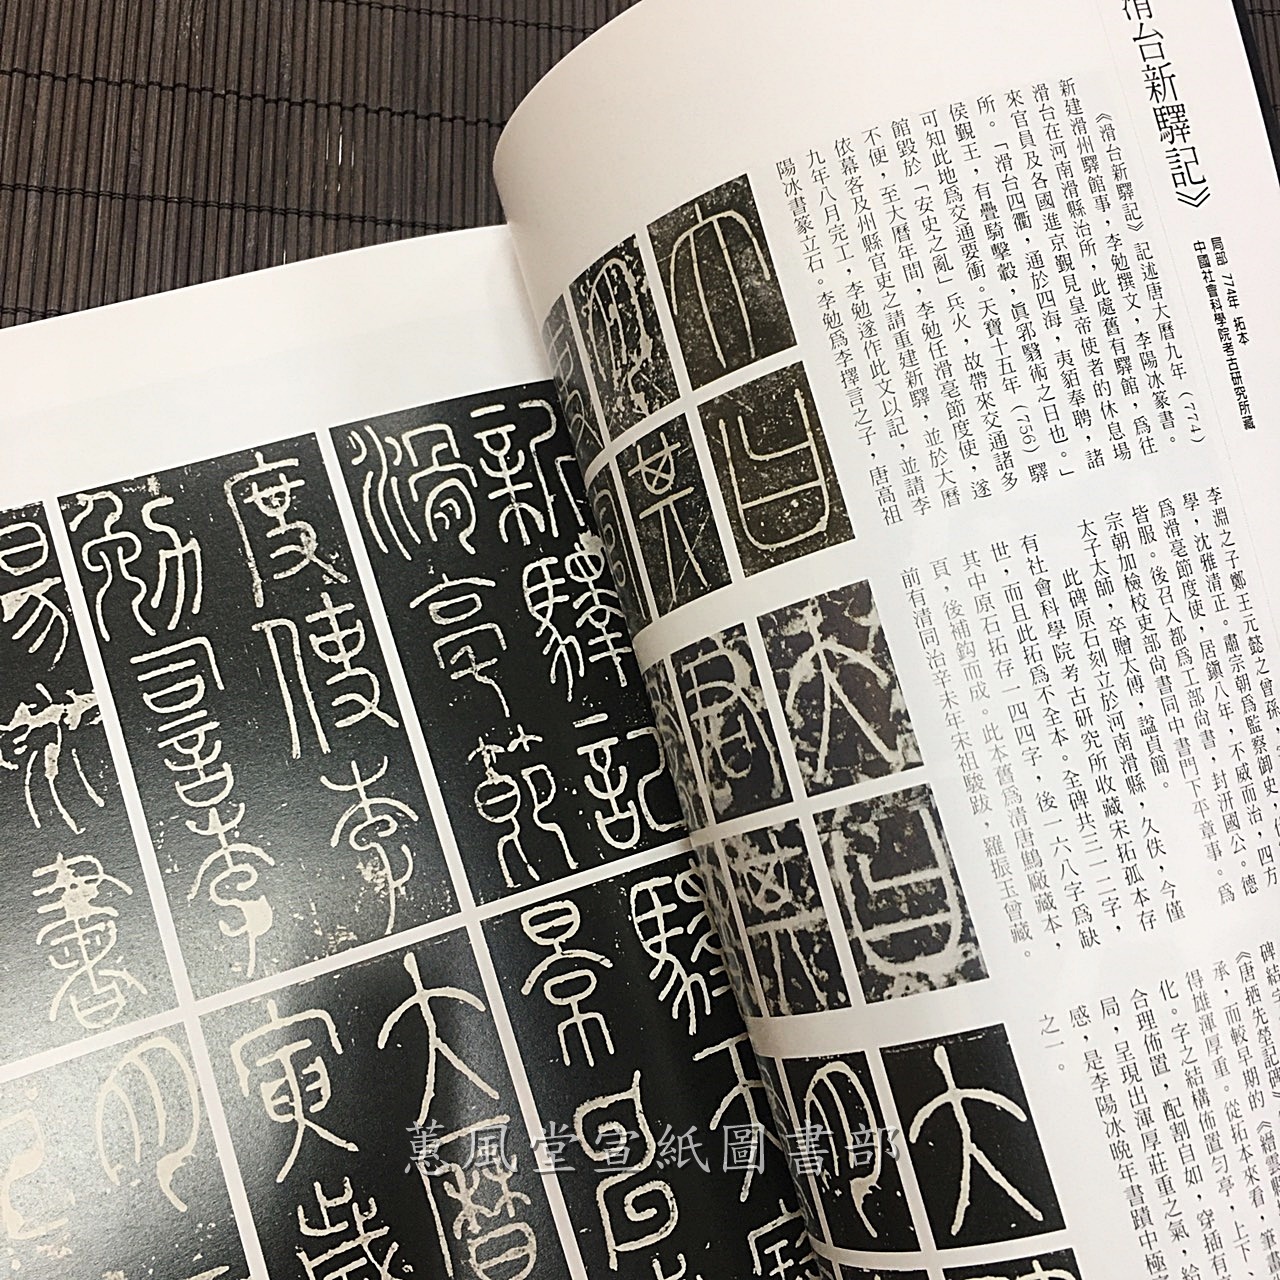 滑台新驛記》
局部 774年 拓本
中國社會科學院考古研究所藏
《滑台新驛記》記述唐大曆九年（774）
新建滑州驛館事，李勉撰文，李陽冰篆書。
滑台在河南滑縣治所，此處舊有驛館，爲往
來官員及各國進京覲見皇帝使者的休息場
所。「滑台四衢，通於四海，夷貊奉聘，諸
侯覲王，有疊騎擊轂，眞郛翳術之日也。」
可知此地爲交通要衝。天寶十五年（756）驛
館毀於「安史之亂」兵火，故帶來交通諸多
不便，至大曆年間，李勉任滑亳節度使，遂
依幕客及州縣官吏之請重建新驛，並於大曆
九年八月完工，李勉遂作此文以記，並請李
陽冰書篆立石。李勉爲李擇言之子，唐高祖
李淵之子鄭王元懿之曾孫，
學，沈雅清正。肅宗朝爲監察御史，四方
爲滑亳節度使，居鎭八年，不威而治，
皆服。後召入都爲工部尚書，封汧國公。德
宗朝加檢校吏部尚書同中書門下平章事。爲
太子太師，卒贈太傅，諡貞簡。
此碑原石刻立於河南滑縣，久佚，今僅
有社會科學院考古研究所收藏宋拓孤本存
世，而且此拓爲不全本。全碑共三一二字，
其中原石拓存一四四字，後一六八字爲缺
頁，後補鈎而成。此本舊爲清唐鷦廠藏本，
前有清同治辛未年宋祖駿跋，羅振玉曾藏。
《唐栖先塋記碑》《縉雲
承，而較早期的
得雄渾厚重。從拓本來看，筆畫
化。字之結構佈置勻亭，上下、
合理佈置，配割自如，穿插有
局，呈現出渾厚莊重之氣，給
感，是李陽冰晚年書蹟中極
之一。
新驛記
滑亳節
度使李
勉司空李
陽冰書
驛
景
大曆
寅歲
蕙風堂宣紙圖書部